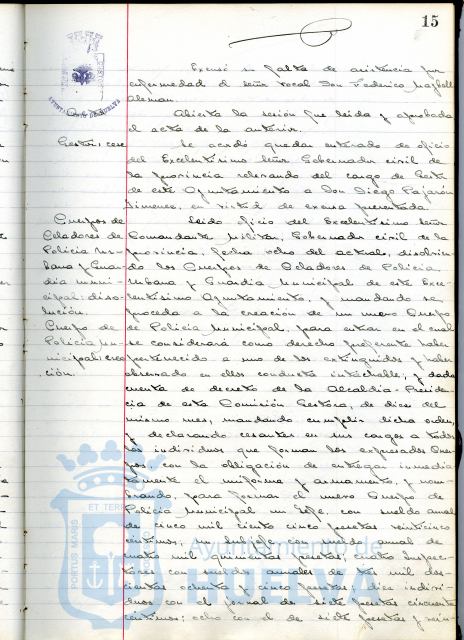 15
AYUNTAMIENTO DE HUELVA
Excusó su falta de asistencia por
enfermedad el señor vocal Don Federico
Alemán.
Acta
Abierta la sesión fue leida y aprobada
el acta de la anterior.
Gestor: cese
Se acordó quedar enterado de oficio
del Excelentísimo Señor Gobernador civil de
la provincia relevando del cargo de Gestor
de este Ayuntamiento a Don Diego Pajarón
Jimenez, en vista de excusa presentada
Cuerpos de
Celadores de
Policía Ur-
bana y Guar-
dia muni-
cipal: diso-
lución.
Cuerpo de
Policía Mu-
nicipal: crea
ción.
Leido oficio del Excelentísimo Señor
Comandante Militar, Gobernador civil de la
provincia, fecha ocho del actual, disolvien-
do los Cuerpos de Celadores de Policía
Urbana y Guardia Municipal de este Exce-
lentísimo Ayuntamiento, y mandando se
proceda a la creación de un nuevo Cuerpo
de Policía Municipal, para entrar en el cual
se considerará como derecho preferente haber
pertenecido a uno de los extinguidos y haber
observado en ellos conducta intachable, y dada
cuenta de decreto de la Alcaldía-Presiden-
cia de esta Comisión Gestora, de diez del
mismo mes, mandando cumplir dicha orden,
y declarando cesantes en sus cargos a todos
los individuos que forman los expresados Cuer-
pos, con la obligación de entregar inmedia-
tamente el uniforme y armamento, y nom-
brando, para formar el nuevo Cuerpo de
Policía Municipal un Jefe, con sueldo anual
de cinco mil ciento cinco pesetas veinticinco
céntimos; un Subjefe con sueldo anual de
cuatro mil quinientas pesetas; ocho Inspec-
tores con sueldo anuales de tres mil dos-
cientas ochenta y cinco pesetas; diez indivi-
duos con el jornal de siete pesetas cincuenta
céntimos; ocho con el de siete pesetas y vein
ET TERRÆ
PORTUS MARIS
Ayuntamiento de
HUELVA